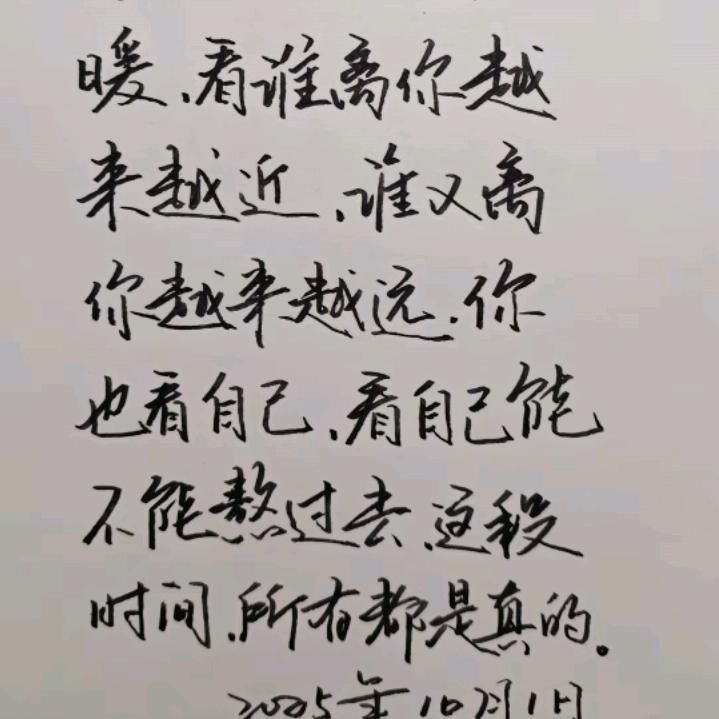 暖、看谁离你越
来越近、谁又离
你越来越远、你
也看自己、看自己能
不能熬过去、这段
时间、所有都是真的。
2025年10月1日